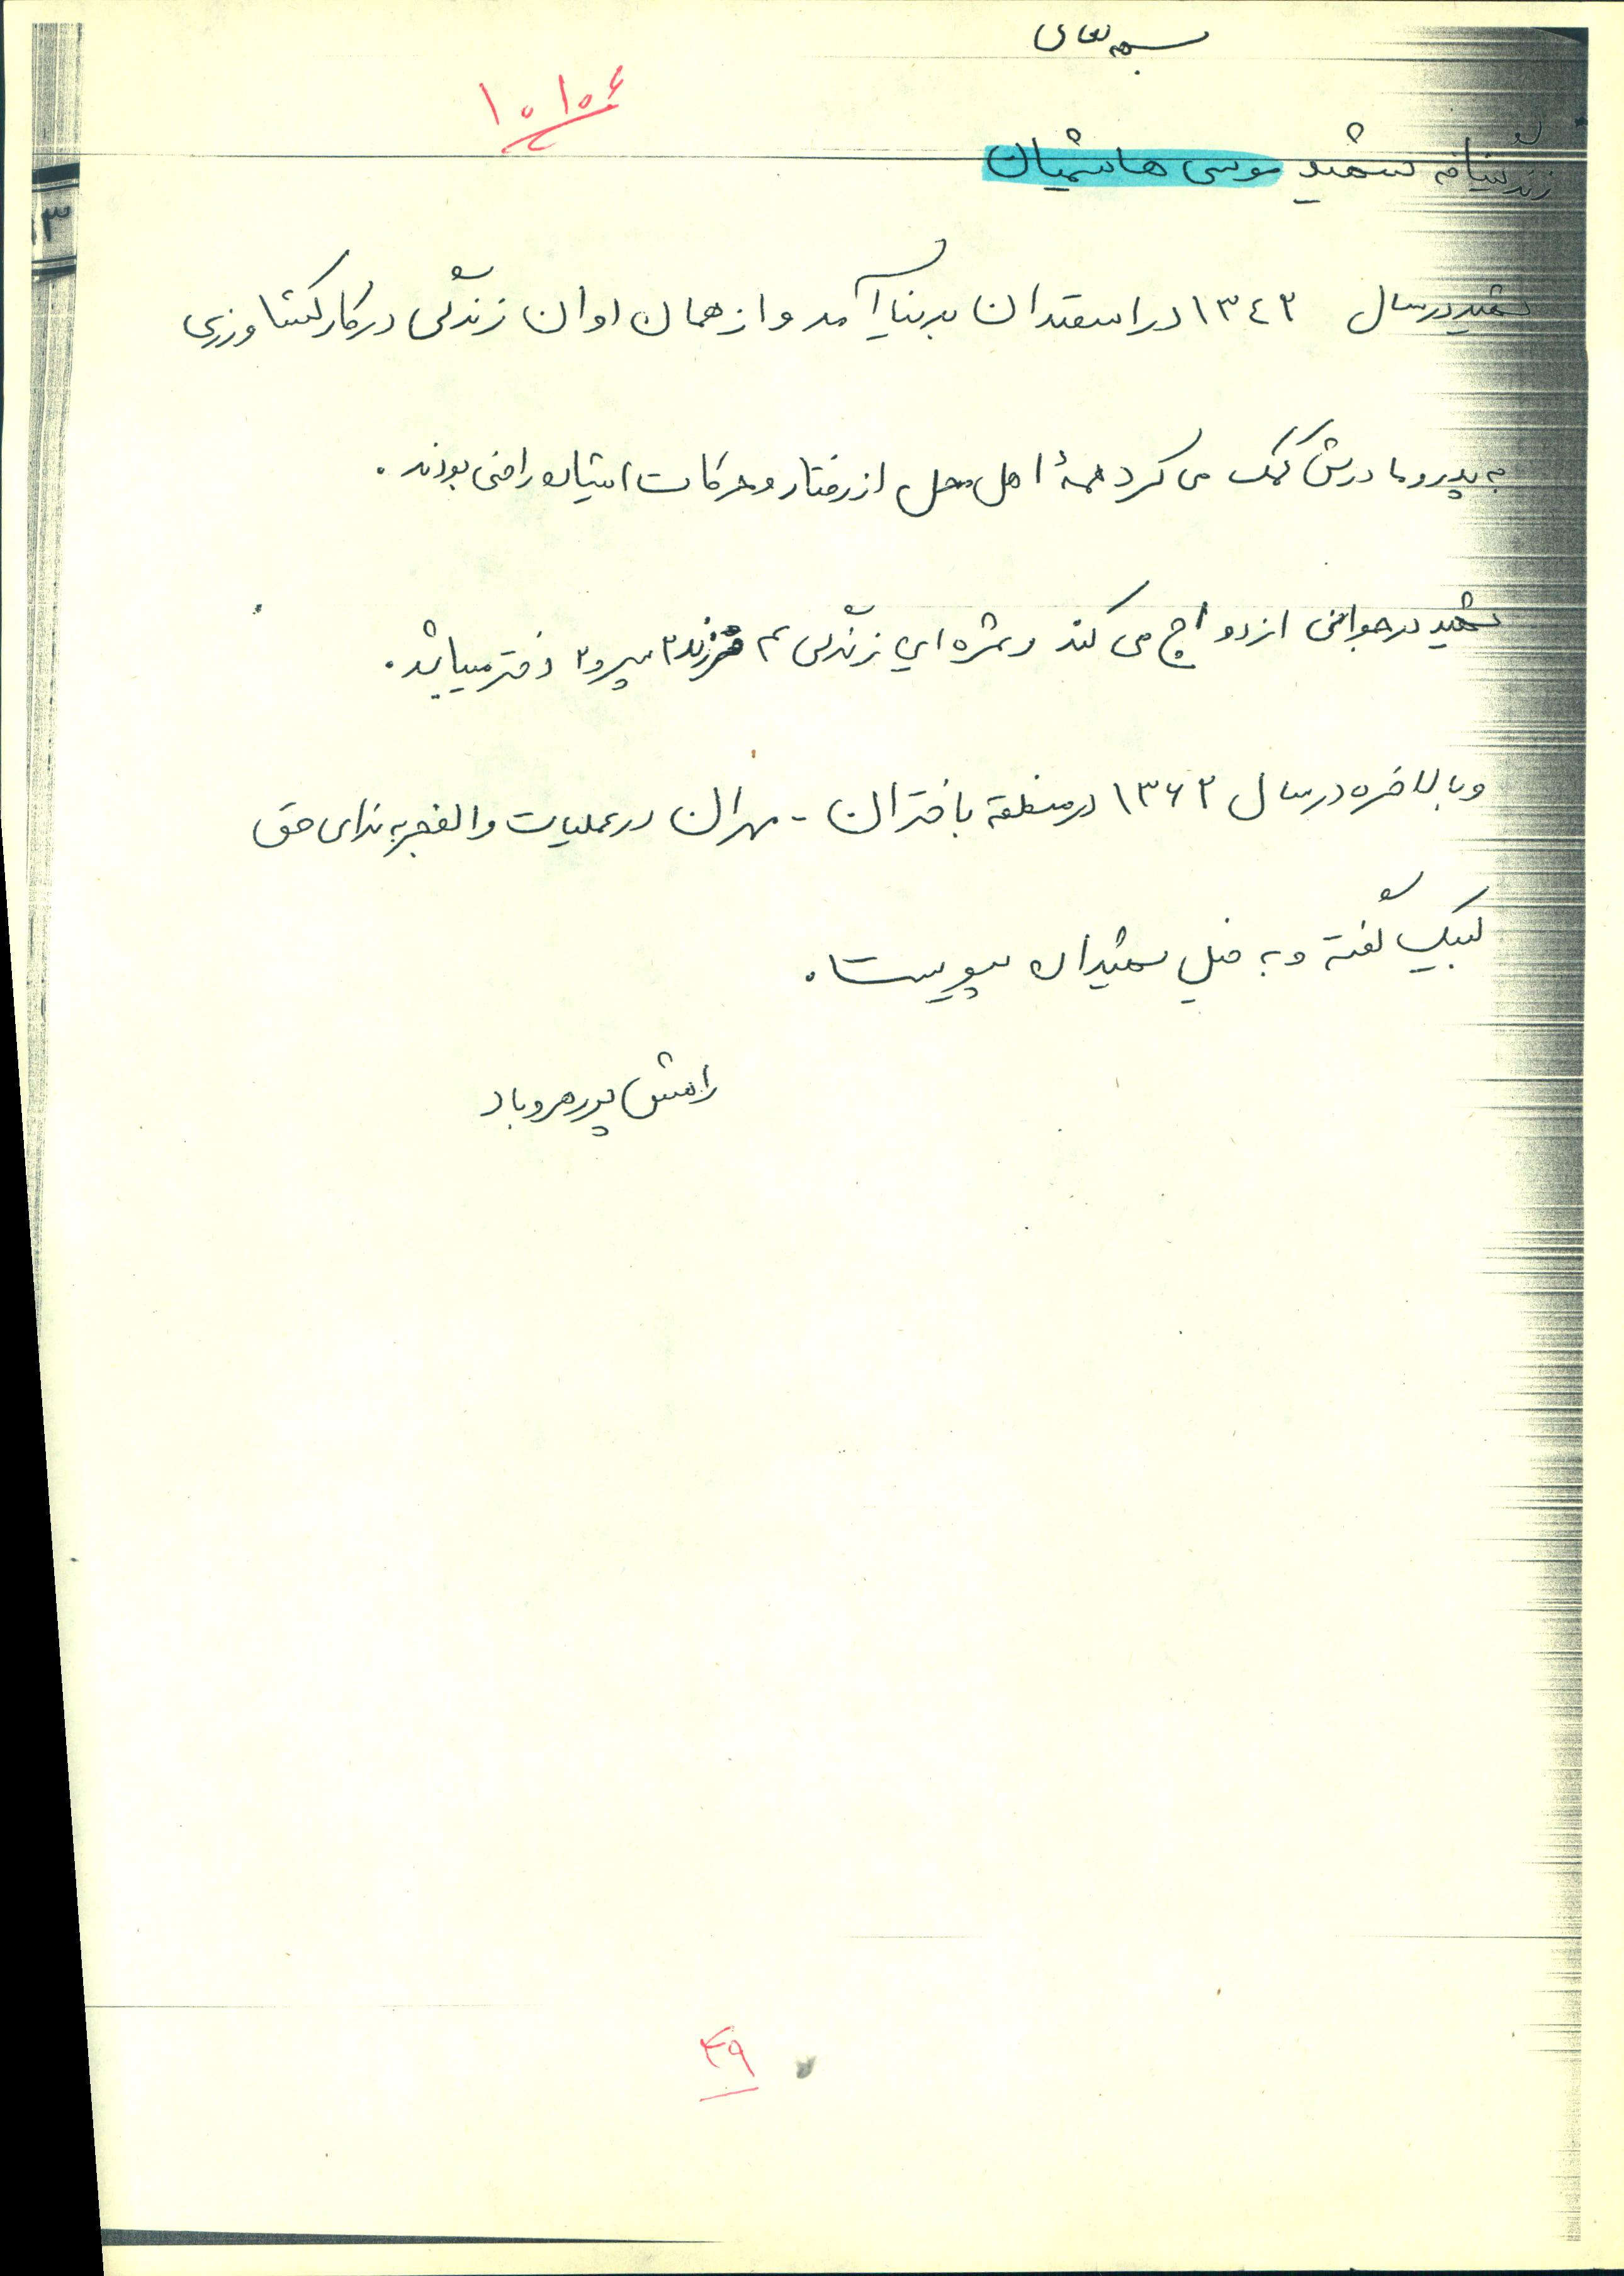 بسمه تعالی
۱۰۱۰۶
زندگینامه شهید موسی هاشمیان
شهید در سال ۱۳۴۲ در اسفندان بدنیا آمد و از همان اوان زندگی در کار کشاورزی
به پدر و مادرش کمک می کرد همهٔ اهل محل از رفتار و حرکات ایشان راضی بودند.
شهید در جوانی ازدواج می کند و ثمره این زندگی ۴ فرزند ۲ پسر و ۲ دختر میباشد.
و بالاخره در سال ۱۳۶۲ در منطقه باختران - مهران در عملیات والفجر به ندای حق
لبیک گفته و به خیل شهیدان پیوست.
روحش
۴۹